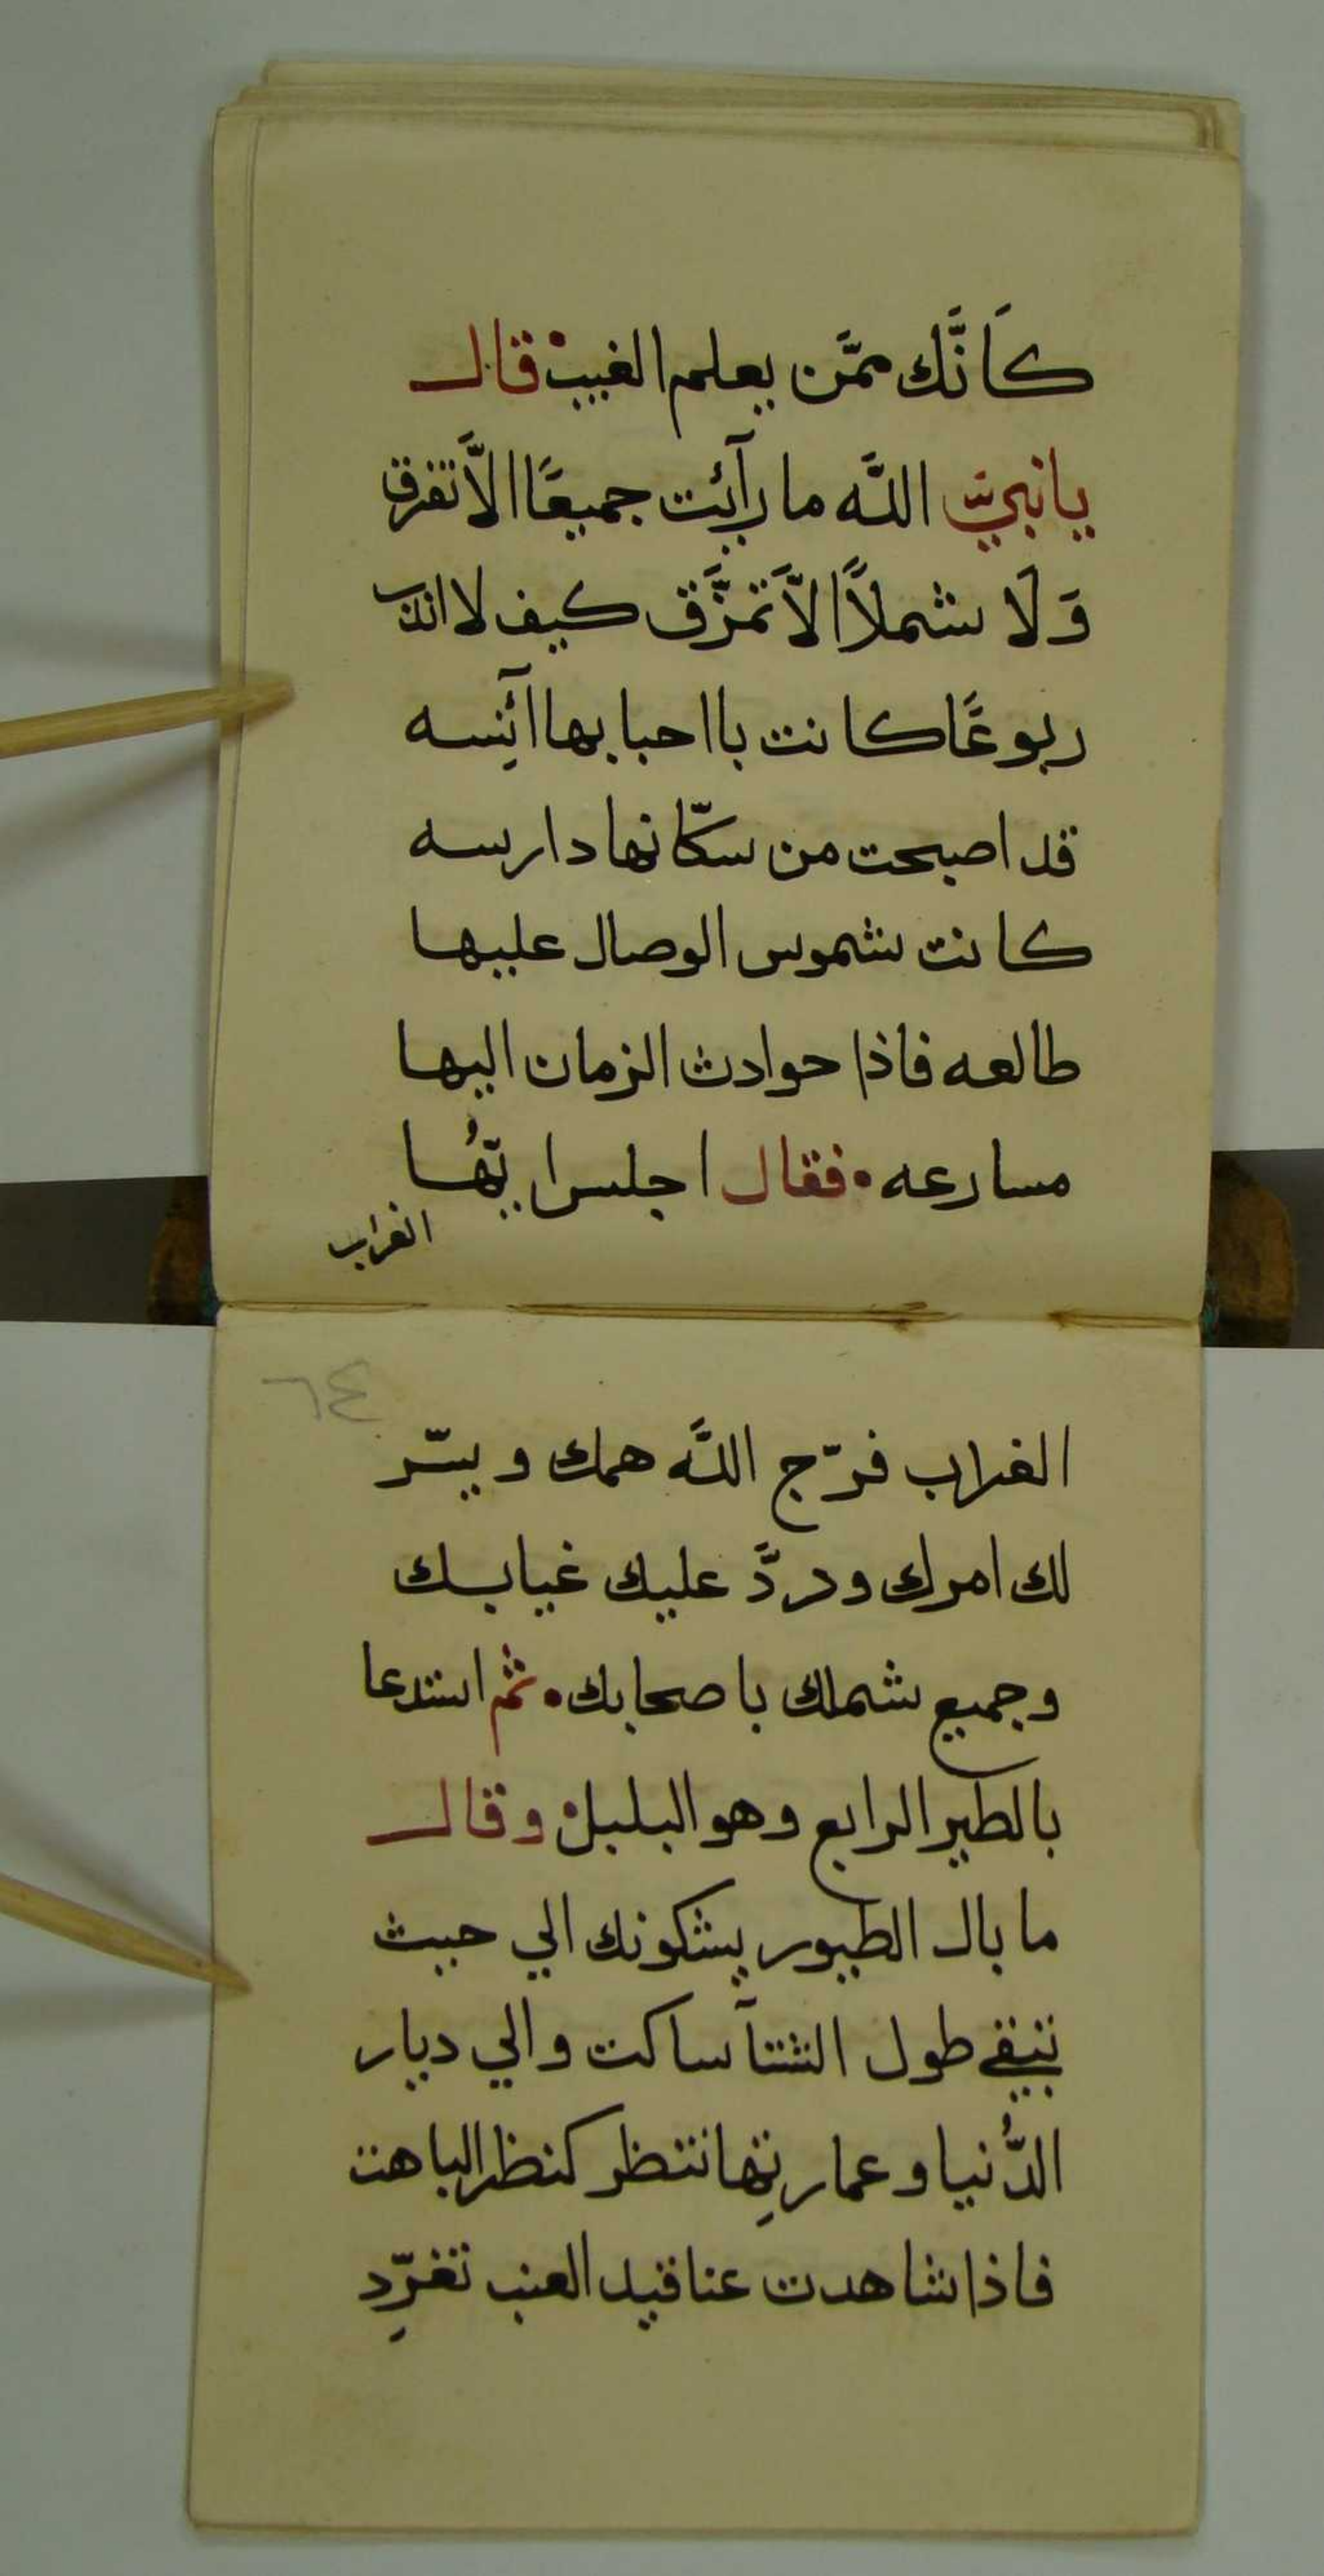 كَاَنَّك ممَّن يعلم الغيب قال
يا نبيّ اللّه ما رآئت جميعًا الاَّ تفرق
وَلَا شملاً الاَّ تمزَّق كيف لا اندب
ربوعًا كانت باحبابها آئِسه
قد اصبحت من سكّانها دارسه
كانت شموس الوصال عليها
طالعه فاذا حوادث الزمان اليها
مسارعه فقال اجلس ايّهُا
الغراب
٦٤
الغراب فرّج اللّه همك ويسّر
لك امرك وردَّ عليك غيابك
وجميع شملك باصحابك ثم استدعا
بالطير الرابع وهو البلبل وقال
ما بال الطيور يشكونك الي حيث
تبقي طول الشتآ ساكت والي ديار
الدُّنيا وعمارتِها تنتظر كنظر الباهت
فاذا شاهدت عناقيد العنب تغرِّد